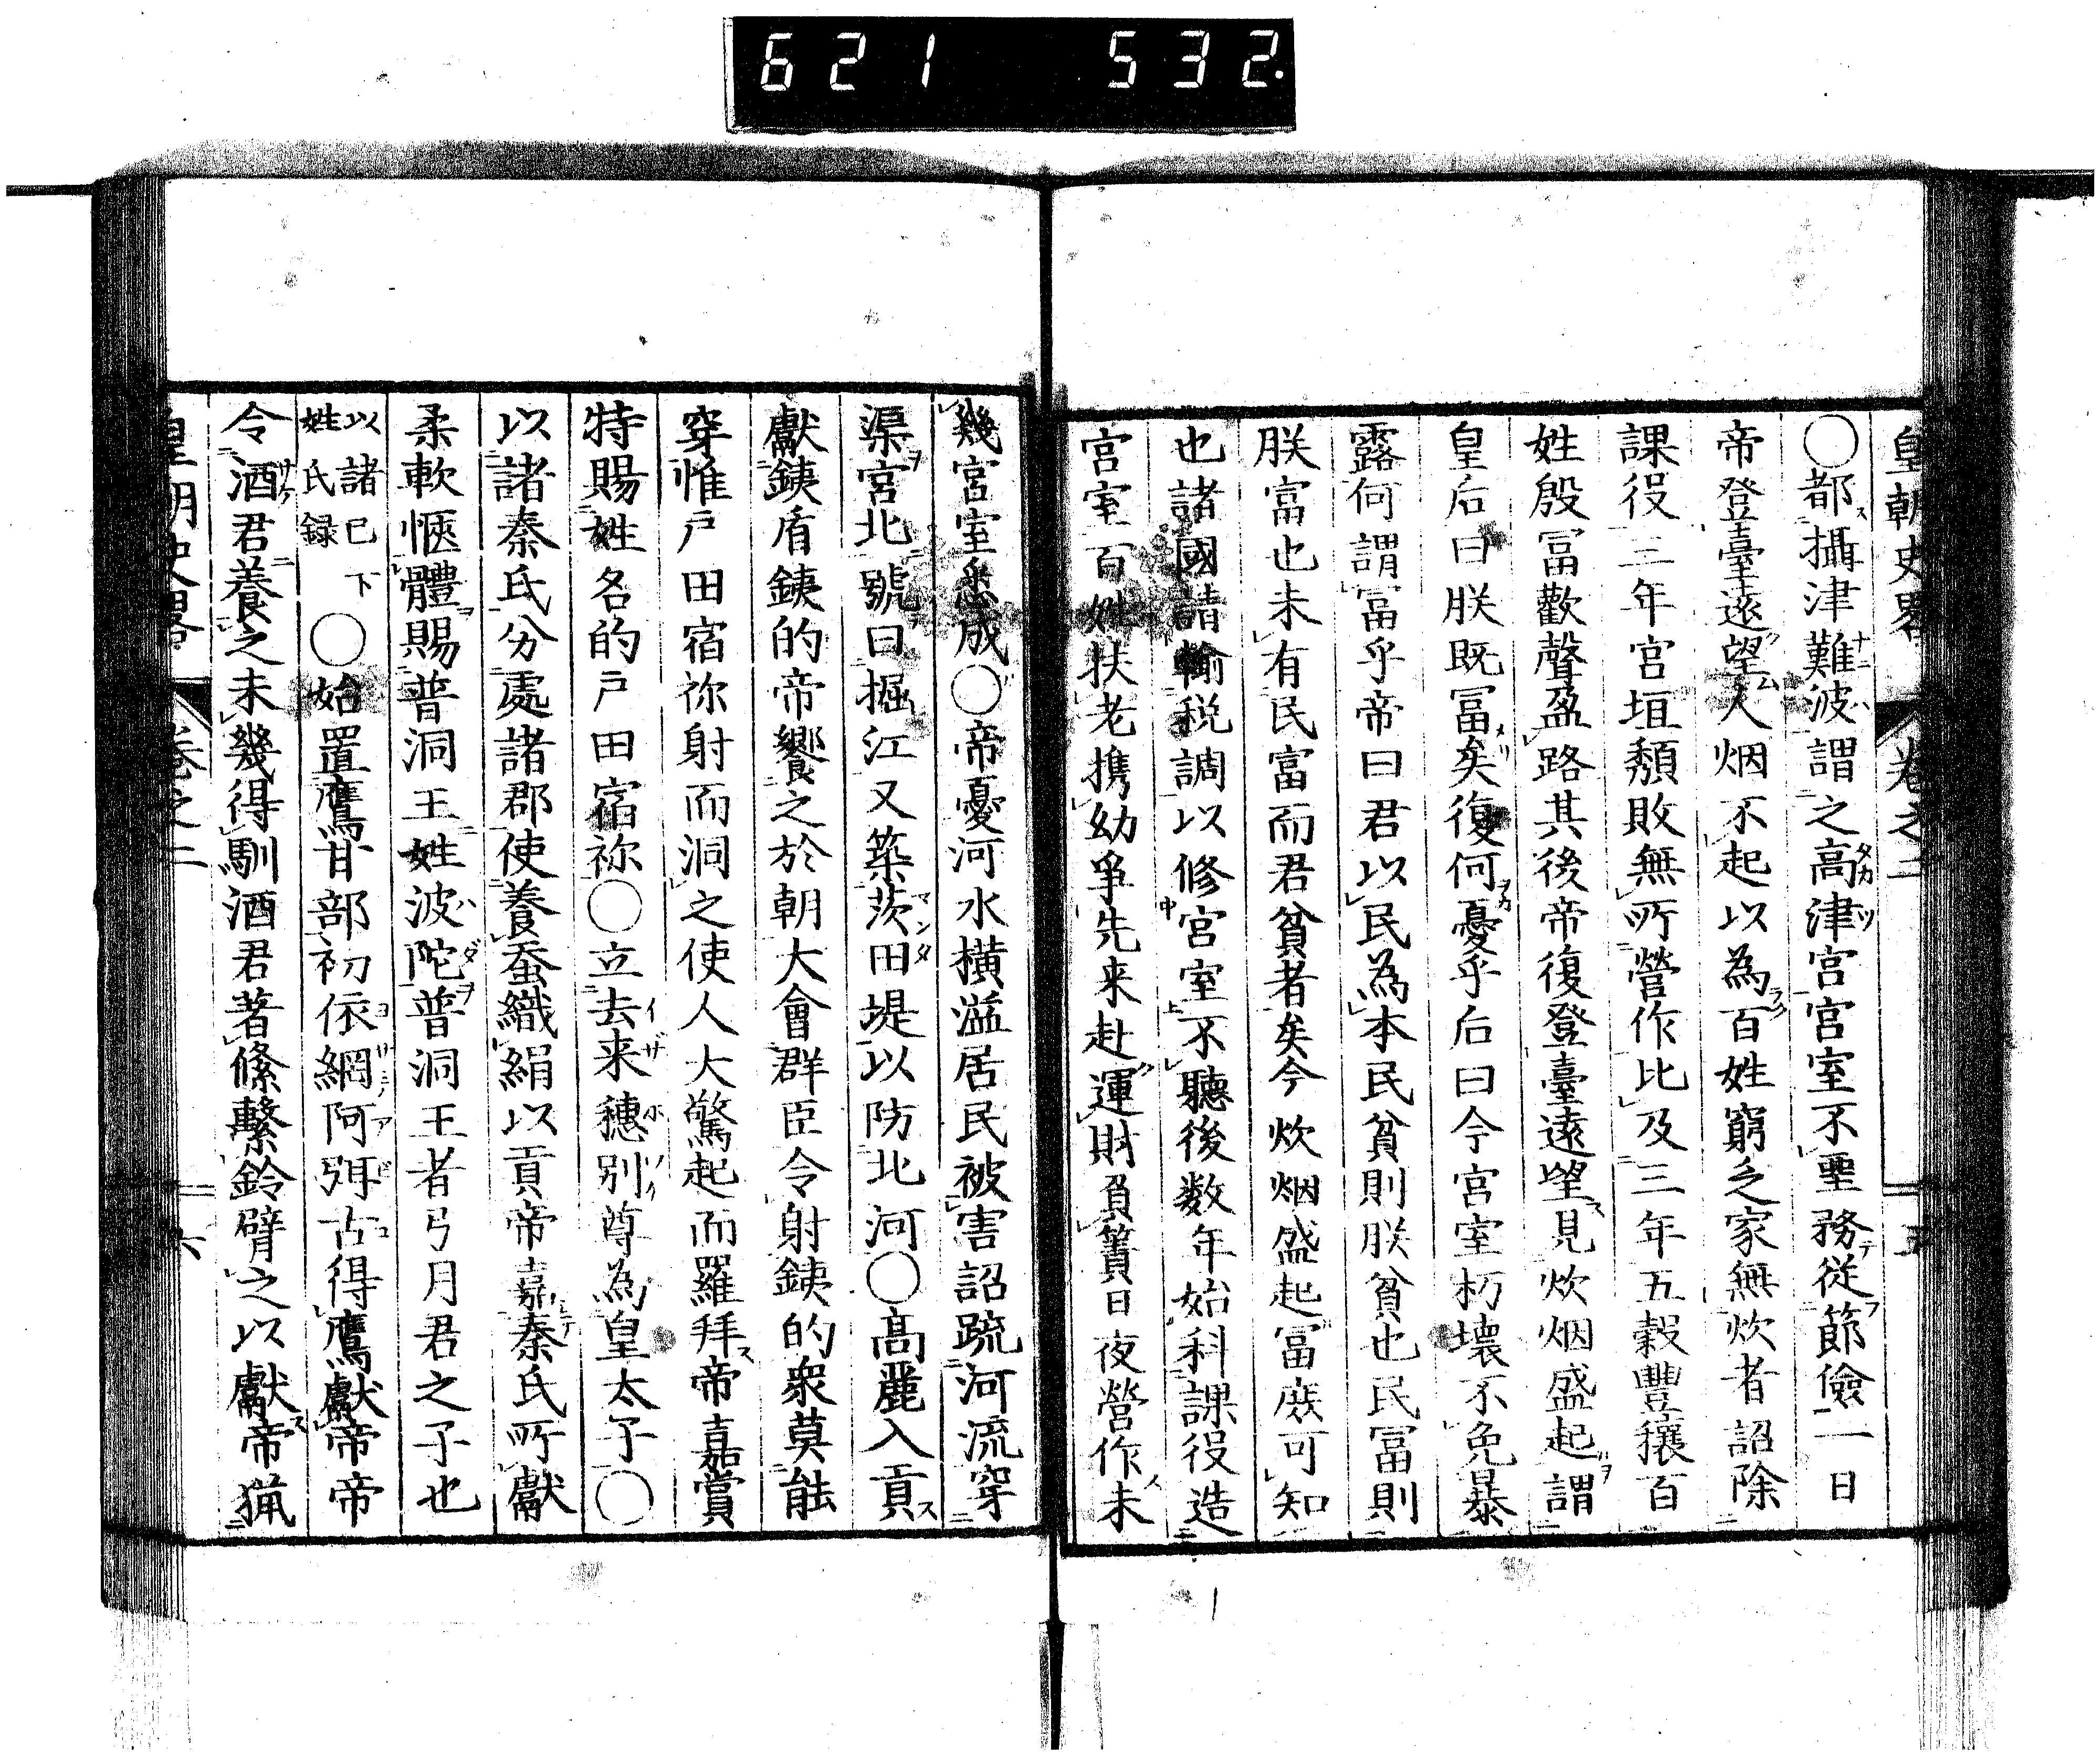 621 532.
皇朝史畧 卷之二 五
〇都攝津難波謂之高津宮宮室不堊務從節儉一日
帝登臺遠望人烟不起以為百姓窮乏家無炊者詔除
課役三年宮垣頽敗無所營作比及三年五穀豐穰百
姓殷冨歡聲盈路其後帝復登臺遠望見炊烟盛起謂
皇后曰朕既冨矣復何憂乎后曰今宮室朽壞不免暴
露何謂冨乎帝曰君以民為本民貧則朕貧也民冨則
朕富也未有民富而君貧者矣今炊烟盛起冨庶可知
也諸國請輸税調以修宮室不聽後数年始科課役造
宮室百姓扶老携幼爭先来赴運財負簣日夜營作未
幾宮室悉成〇帝憂河水横溢居民被害詔疏河流穿
渠宮北號曰掘江又築茨田堤以防北河〇高麗入貢
獻鐵盾鐵的帝饗之於朝大會群臣令射鐵的衆莫能
穿惟戸田宿祢射而洞之使人大驚起而羅拜帝嘉賞
特賜姓名的戸田宿祢〇立去来穗別尊為皇太子〇
以諸秦氏分處諸郡使養蚕織絹以貢帝嘉秦氏所獻
柔軟愜體賜普洞王姓波陀普洞王者弓月君之子也
以諸巳下
姓氏録
〇始置鷹甘部初依網阿弭古得鷹獻帝帝
令酒君養之未幾得馴酒君著絛繫鈴臂之以獻帝猟
皇朝史畧 卷之二 六